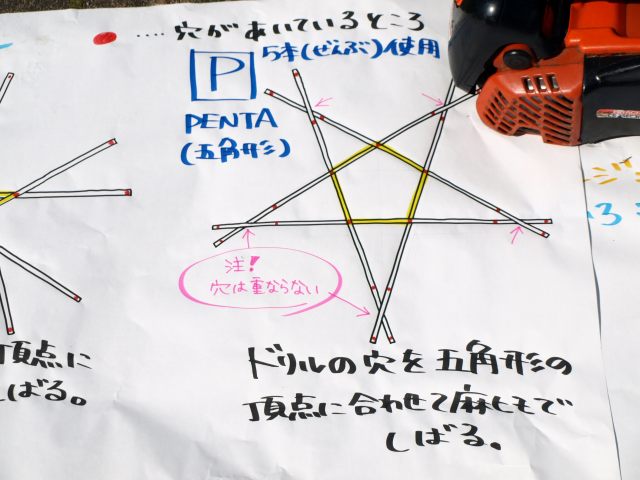 ‥‥穴があいているところ
P
5本(ぜんぶ)使用
PENTA
(五角形)
注!
穴は重ならない
ドリルの穴を五角形の
頂点に合わせて麻ヒモで
しばる。
頂点に
しばる。